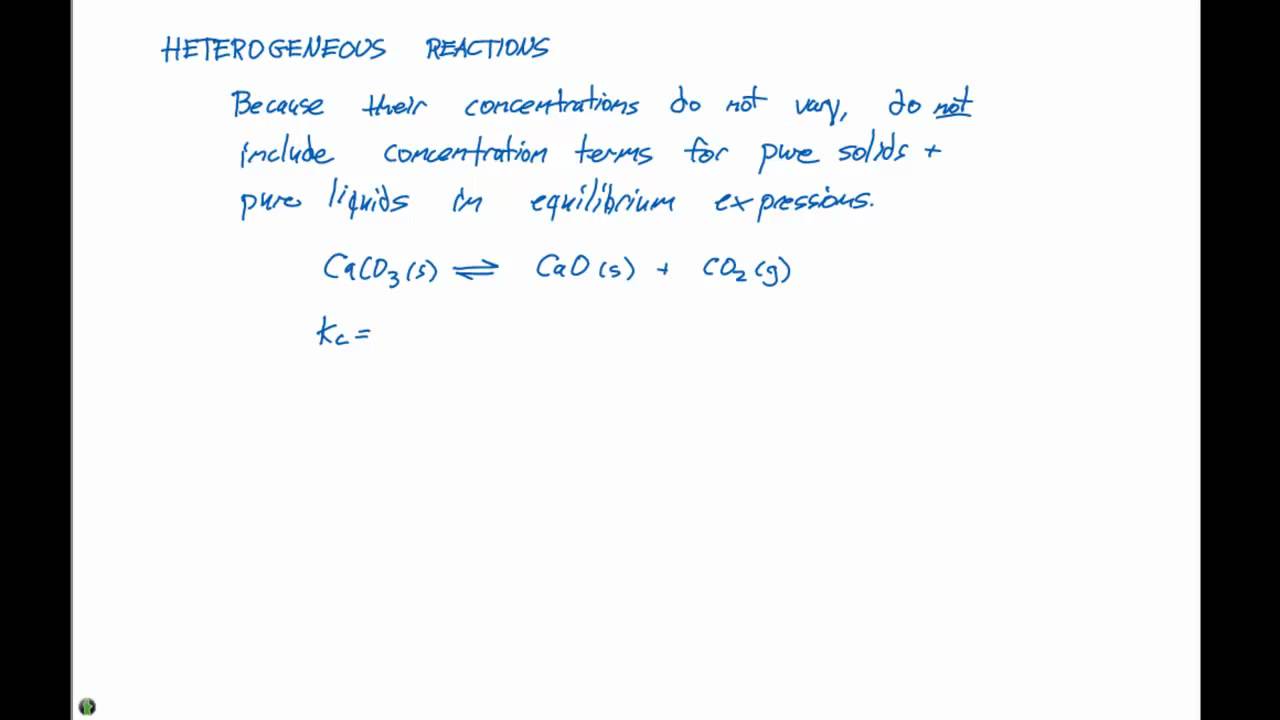 HETEROGENEOUS REACTIONS
Because their concentrations do not vary, do not
include concentration terms for pure solids +
pure liquids in equilibrium expressions.
CaCO₃(s) ⇌ CaO(s) + CO₂(g)
Kc =